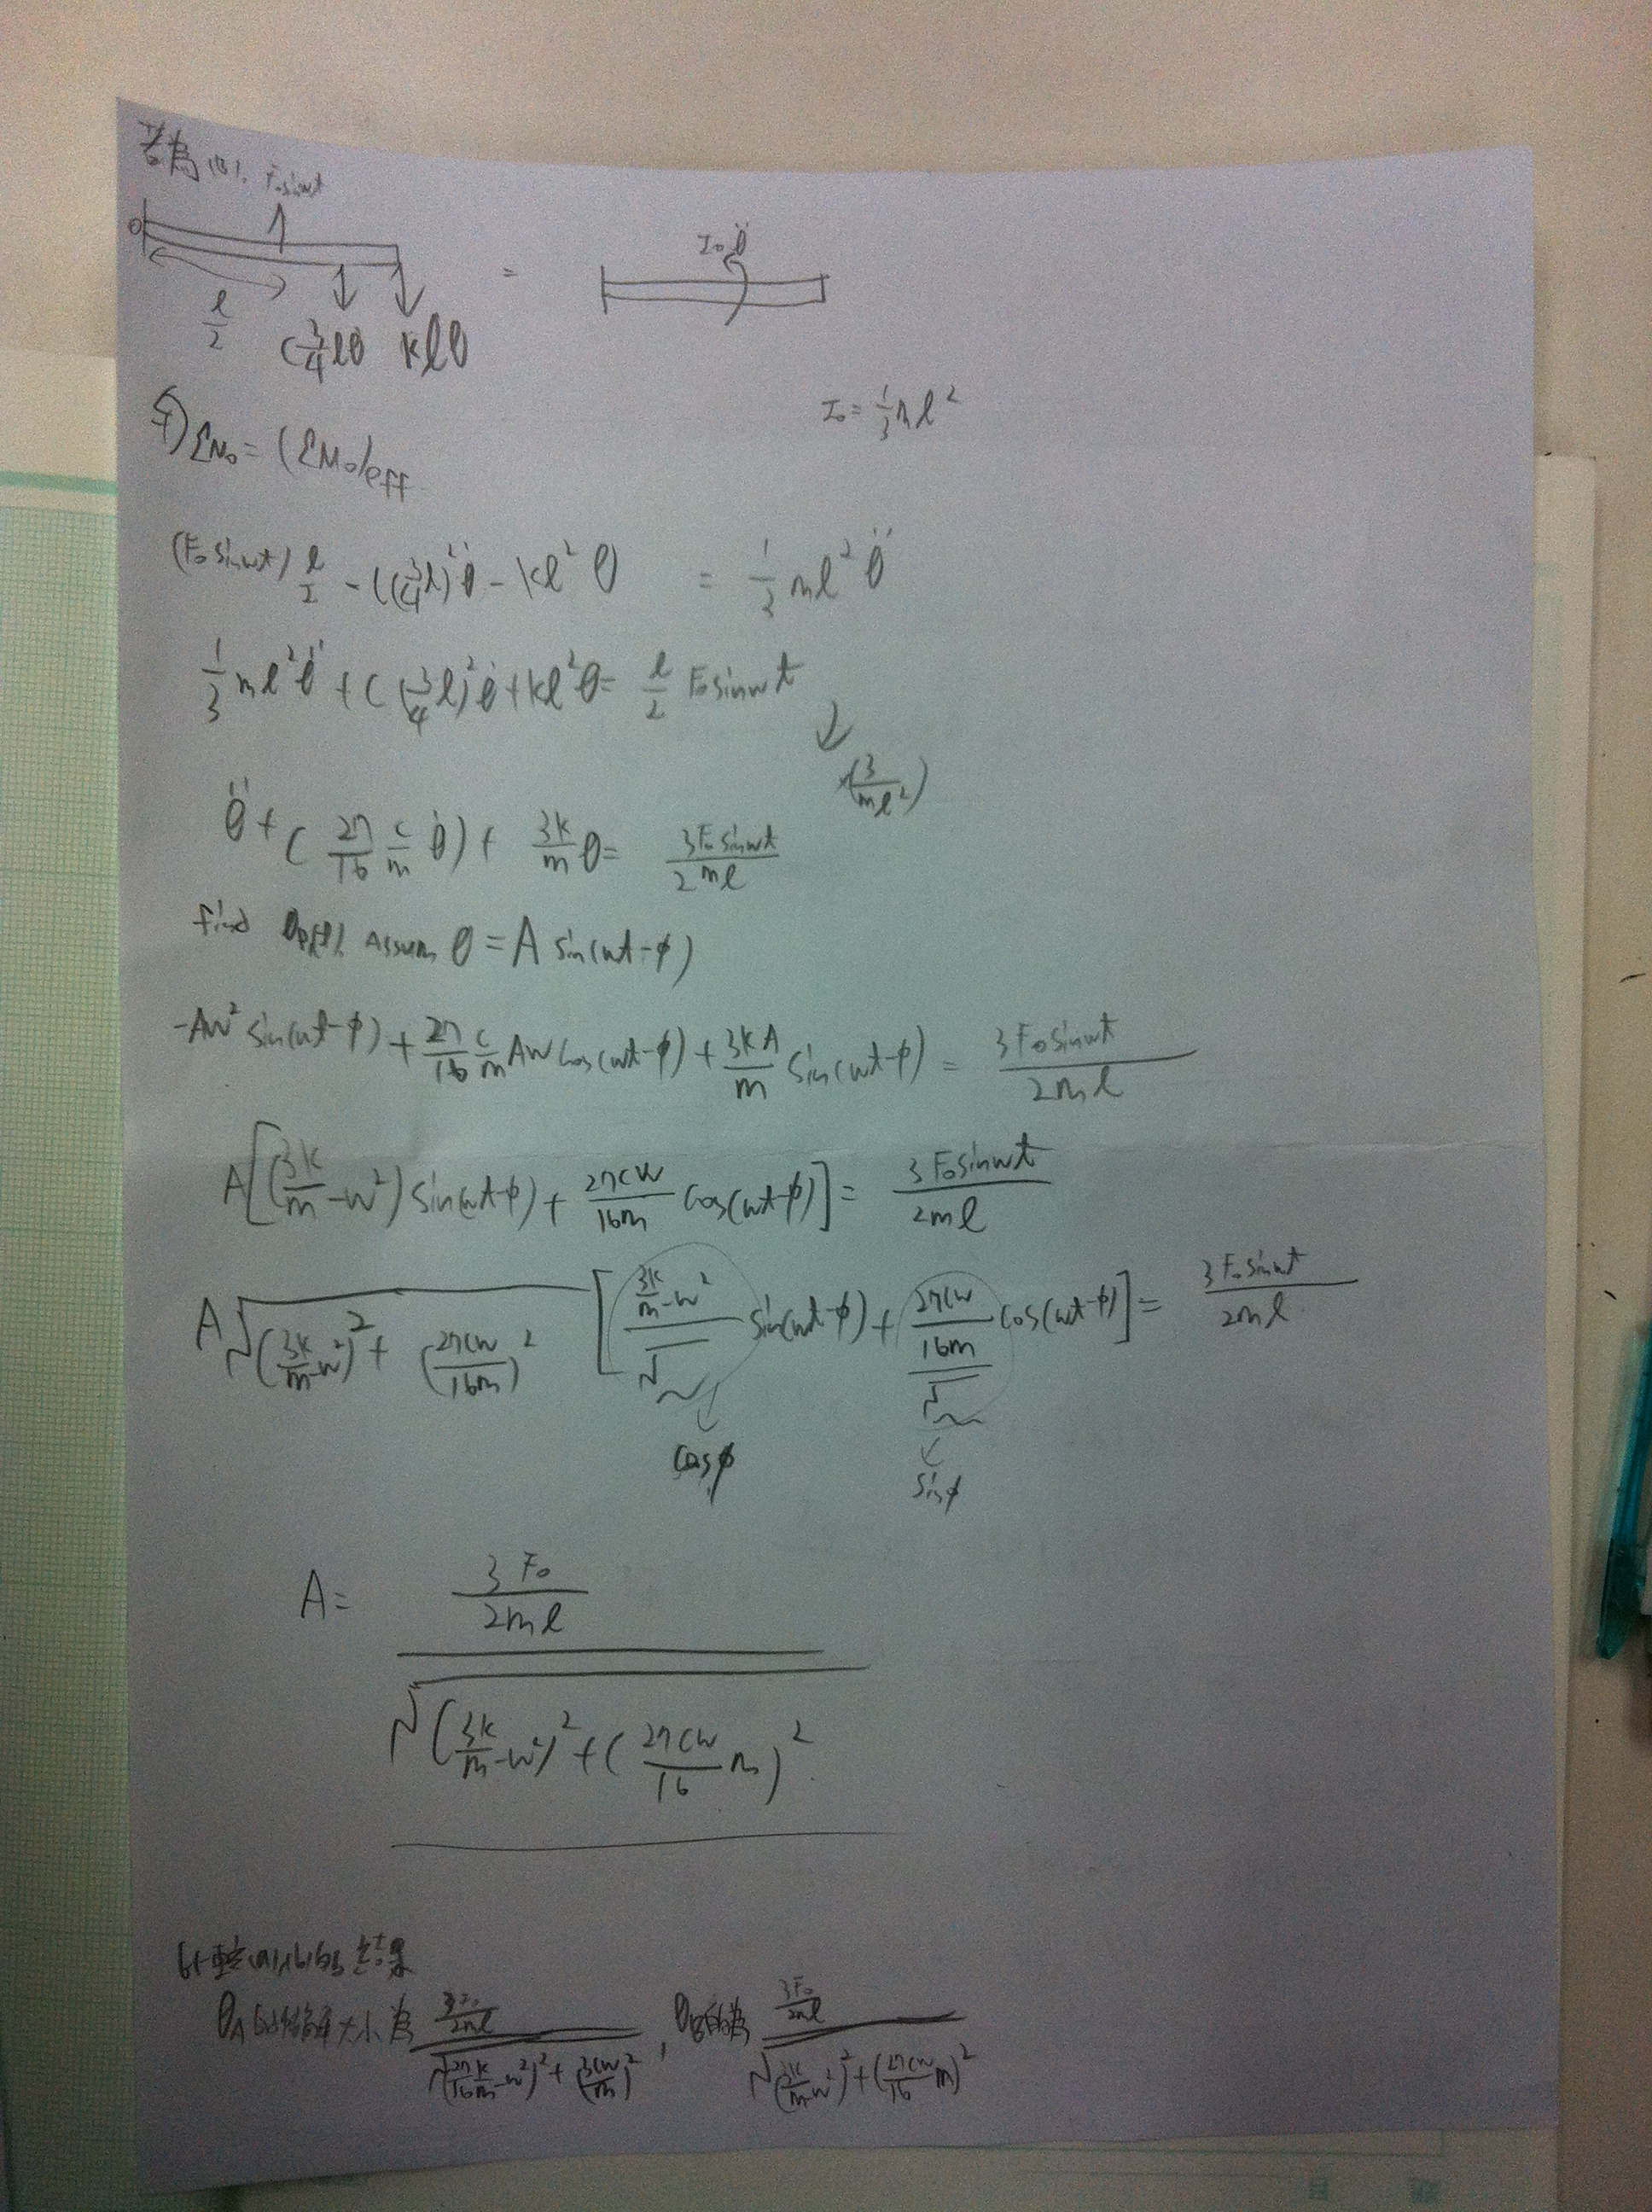 若為(B)、F₀sinωt
O
I₀θ̈
=
ℓ/2 C¾ℓθ̇ kℓθ
I₀ = ⅓mℓ²
+) ΣM₀ = (ΣM₀)eff
(F₀sinωt) ℓ/2 - C(¾ℓ)²θ̇ - kℓ²θ = ⅓mℓ²θ̈
⅓mℓ²θ̈ + C(¾ℓ)²θ̇ + kℓ²θ = ℓ/2 F₀sinωt
×(3/mℓ²)
θ̈ + (27/16 c/m θ̇) + 3k/m θ = 3F₀sinωt/2mℓ
find θp(t), Assum θ = A sin(ωt-φ)
-Aω² sin(ωt-φ) + 27/16 c/m Aω cos(ωt-φ) + 3kA/m sin(ωt-φ) = 3F₀sinωt/2mℓ
A[(3k/m - ω²) sin(ωt-φ) + 27cω/16m cos(ωt-φ)] = 3F₀sinωt/2mℓ
A√((3k/m - ω²)² + (27cω/16m)²) [(3k/m - ω²)/√~ sin(ωt-φ) + (27cω/16m)/√~ cos(ωt-φ)] = 3F₀sinωt/2mℓ
cosφ sinφ
A = (3F₀/2mℓ)/√((3k/m - ω²)² + (27cω/16 m)²)
比較(A)(B)的結果
θA的振幅大小為 (3F₀/2mℓ)/√((27/16 k/m - ω²)² + (3cω/m)²) , θB的為 (3F₀/2mℓ)/√((3k/m - ω²)² + (27cω/16 m)²)